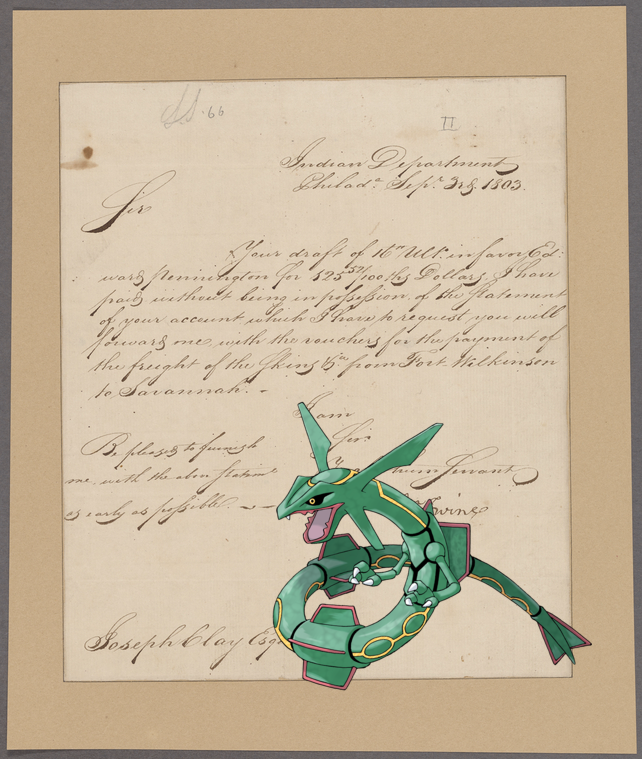 66
II
Indian Department
Philadª. Sepr. 3rd. 1803.
Sir
Your draft of 16th Ulto. in favor Ed:
ward Pennington for $25 52/100ths Dollars, I have
paid without being in possession of the Statement
of your account, which I have to request you will
forward me, with the vouchers for the payment of
the freight of the Skins &ca from Fort Wilkinson
to Savannah. -
I am
Sir
Servant
Be pleased to furnish
me, with the above Statemt
as early as possible. - -
Joseph Clay Esqr